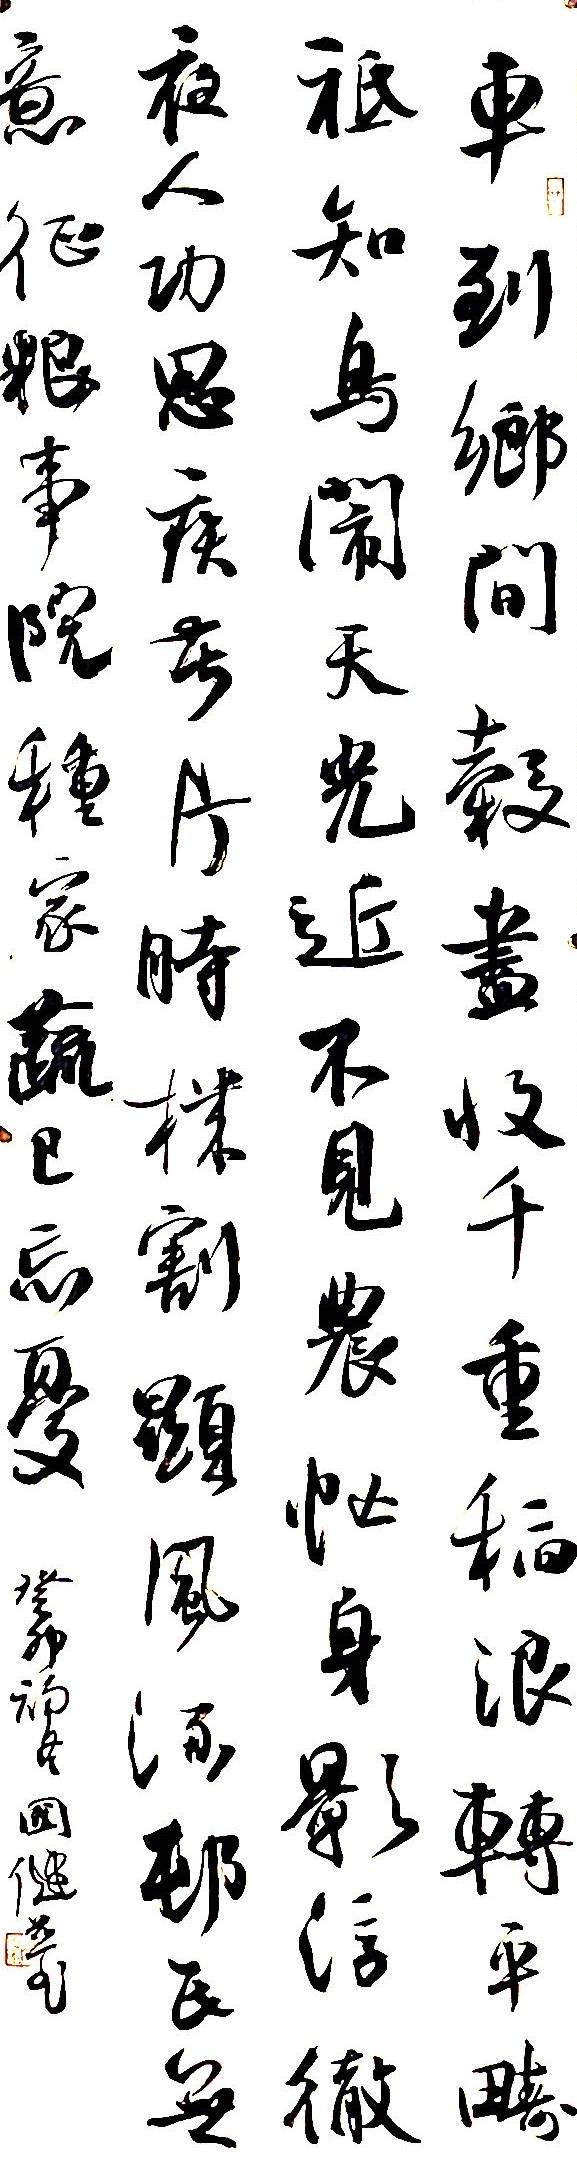 車到鄉間穀盡收千重稻浪轉平疇
祗知鳥鬧天光近不見農忙身影浮徹
夜人功思疾苦片時機割顯風流邨民無
意征粮事院種家蔬已忘憂
癸卯初冬國